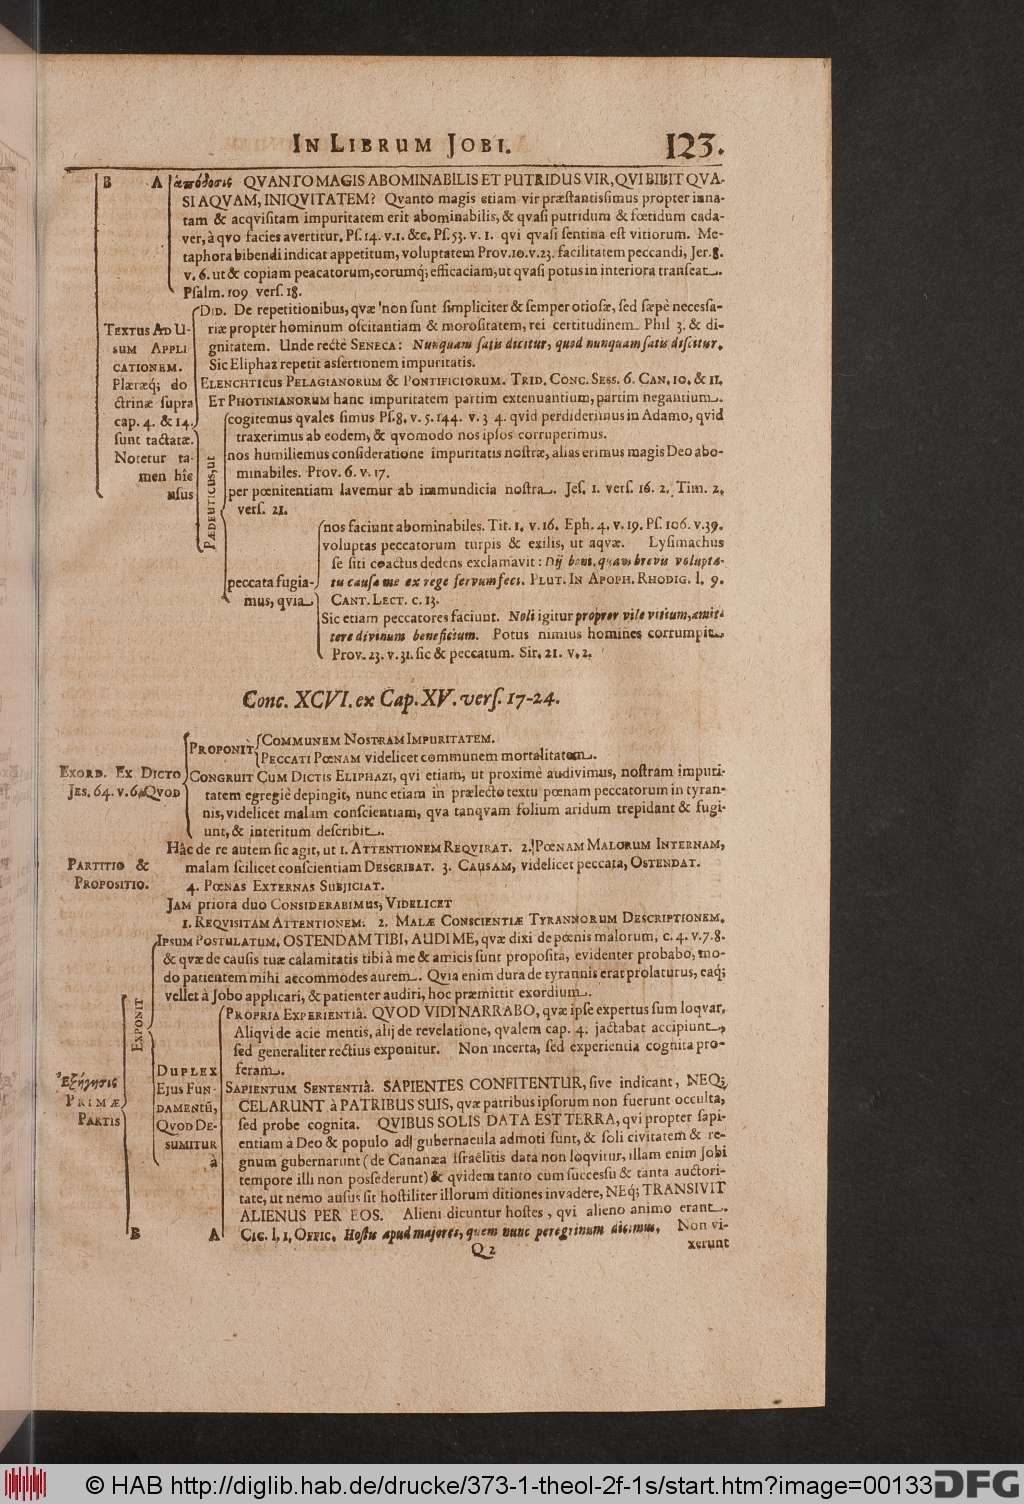 IN LIBRUM JOBI. 123.
B A ἀπόδοσις QVANTO MAGIS ABOMINABILIS ET PUTRIDUS VIR, QVI BIBIT QVA-
SI AQVAM, INIQVITATEM? Qvanto magis etiam vir præstantissimus propter inna-
tam & acqvisitam impuritatem erit abominabilis, & qvasi putridum & fœtidum cada-
ver, à qvo facies avertitur. Ps. 14. v. 1. &c. Ps. 53. v. 1. qvi qvasi sentina est vitiorum. Me-
taphora bibendi indicat appetitum, voluptatem Prov. 10. v. 23. facilitatem peccandi, Jer. 8.
v. 6. ut & copiam peacatorum, eorumq; efficaciam, ut qvasi potus in interiora transeat.
Psalm. 109 vers. 18.
TEXTUS AD U-
SUM APPLI
CATIONEM.
Plæræq; do
ctrinæ supra
cap. 4. & 14.
sunt tactatæ.
Notetur ta-
men hîc
usus
DID. De repetitionibus, qvæ non sunt simpliciter & semper otiosæ, sed sæpè necessa-
riæ propter hominum oscitantiam & morositatem, rei certitudinem Phil 3. & di-
gnitatem. Unde rectè SENECA: Nunquam satis dicitur, quod nunquam satis discitur.
Sic Eliphaz repetit assertionem impuritatis.
ELENCHTICUS PELAGIANORUM & PONTIFICIORUM. TRID. CONC. SESS. 6. CAN. 10. & 11.
ET PHOTINIANORUM hanc impuritatem partim extenuantium, partim negantium.
PÆDEUTICUS, ut
cogitemus qvales simus Ps. 8. v. 5. 144. v. 3 4. qvid perdiderimus in Adamo, qvid
traxerimus ab eodem, & qvomodo nos ipsos corruperimus.
nos humiliemus consideratione impuritatis nostræ, alias erimus magis Deo abo-
minabiles. Prov. 6. v. 17.
per pœnitentiam lavemur ab immundicia nostra. Jes. 1. vers. 16. 2. Tim. 2.
vers. 21.
peccata fugia-
mus, qvia
nos faciunt abominabiles. Tit. 1. v. 16. Eph. 4. v. 19. Ps. 106. v. 39.
voluptas peccatorum turpis & exilis, ut aqvæ. Lysimachus
se siti coactus dedens exclamavit: Dij boni, quam brevis volupta-
tis causa me ex rege servum feci. PLUT. IN APOPH. RHODIG. l. 9.
CANT. LECT. c. 13.
Sic etiam peccatores faciunt. Noli igitur propter vile vitium, amit-
tere divinum beneficium. Potus nimius homines corrumpit.
Prov. 23. v. 31. sic & peccatum. Sir. 21. v. 2.
Conc. XCVI. ex Cap. XV. vers. 17-24.
EXORD. EX DICTO
JES. 64. v. 6. QVOD
PROPONIT
COMMUNEM NOSTRAM IMPURITATEM.
PECCATI PŒNAM videlicet communem mortalitatem.
CONGRUIT CUM DICTIS ELIPHAZI, qvi etiam, ut proximè audivimus, nostram impuri-
tatem egregiè depingit, nunc etiam in prælecto textu pœnam peccatorum in tyran-
nis, videlicet malam conscientiam, qva tanqvam folium aridum trepidant & fugi-
unt, & interitum describit.
PARTITIO &
PROPOSITIO.
Hâc de re autem sic agit, ut 1. ATTENTIONEM REQVIRAT. 2. PŒNAM MALORUM INTERNAM,
malam scilicet conscientiam DESCRIBAT. 3. CAUSAM, videlicet peccata, OSTENDAT.
4. PŒNAS EXTERNAS SUBJICIAT.
JAM priora duo CONSIDERABIMUS, VIDELICET
1. REQVISITAM ATTENTIONEM. 2. MALÆ CONSCIENTIÆ TYRANNORUM DESCRIPTIONEM.
Ἐξήγησις
PRIMÆ
PARTIS
EXPONIT
IPSUM POSTULATUM. OSTENDAM TIBI, AUDI ME, qvæ dixi de pœnis malorum, c. 4. v. 7. 8.
& qvæ de causis tuæ calamitatis tibi à me & amicis sunt proposita, evidenter probabo, mo-
do patientem mihi accommodes aurem. Qvia enim dura de tyrannis erat prolaturus, eaq;
vellet à Jobo applicari, & patienter audiri, hoc præmittit exordium.
DUPLEX
EJUS FUN-
DAMENTŨ,
QVOD DE-
SUMITUR
à
PROPRIA EXPERIENTIÂ. QVOD VIDI NARRABO, qvæ ipse expertus sum loqvar.
Aliqvi de acie mentis, alij de revelatione, qvalem cap. 4. jactabat accipiunt,
sed generaliter rectius exponitur. Non incerta, sed experientia cognita pro-
feram.
SAPIENTUM SENTENTIÂ. SAPIENTES CONFITENTUR, sive indicant, NEQ;
CELARUNT à PATRIBUS SUIS, qvæ patribus ipsorum non fuerunt occulta,
sed probe cognita. QVIBUS SOLIS DATA EST TERRA, qvi propter sapi-
entiam à Deo & populo ad gubernacula admoti sunt, & soli civitatem & re-
gnum gubernarunt (de Cananæa Israëlitis data non loqvitur, illam enim Jobi
tempore illi non possederunt) & qvidem tanto cum successu & tanta auctori-
tate, ut nemo ausus sit hostiliter illorum ditiones invadere, NEQ; TRANSIVIT
ALIENUS PER EOS. Alieni dicuntur hostes, qvi alieno animo erant.
B A CIC. l. 1. OFFIC. Hostis apud majores, quem nunc peregrinum dicimus. Non vi-
Q 2 xerunt
© HAB http://diglib.hab.de/drucke/373-1-theol-2f-1s/start.htm?image=00133 DFG